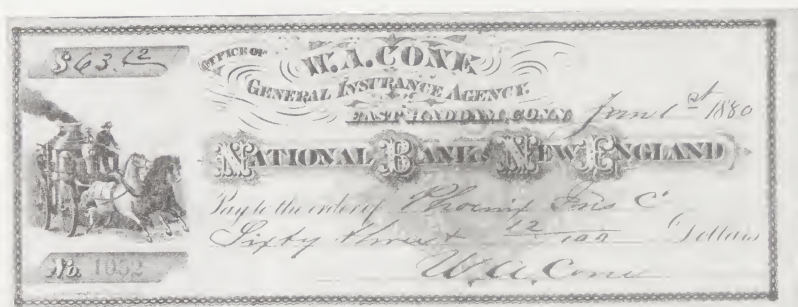 $63.12
OFFICE OF
W. A. CONE
GENERAL INSURANCE AGENCY.
EAST HADDAM, CONN. 1st 1880
NATIONAL BANK OF NEW ENGLAND
Pay to the order of Phoenix Ins Co
Sixty three & 12/100 Dollars
No. 1052
W. A. Cone